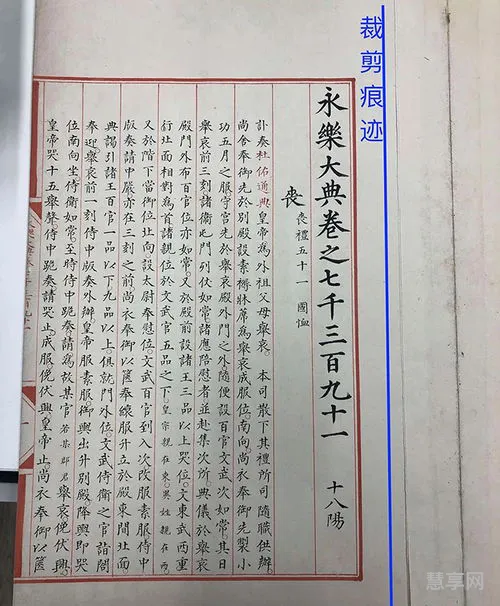 裁剪痕迹
永樂大典卷之七千三百九十一 十八陽
喪 喪禮五十一 國恤
訃奏杜佑通典皇帝為外祖父母舉哀。本司散下其禮所司隨職供辦
尚舍奉御先於別殿設素褥牀席為舉哀成服位。南向尚衣奉御先製小
功五月之服守宮先於舉哀殿外門之外隨便設百官文武次如常其日
舉哀前三刻諸衛屯門列仗如常諸應陪慰者並赴集次所典儀於舉哀
殿門外布百官位亦如常又於殿前設諸王三品以上哭位。文東武西重
行北面相對為首諸親位於文武官五品之下。皇宗親在東。異姓親在西
又於階下當御位北向設太尉奉慰位文武百官到入次改服素服侍中
版奏請中嚴亦在三刻之前尚衣奉御以篋奉縗服升立於殿東間北面
典謁引諸王百官一品以下九品以上俱就門外位文武侍衛之官詣閤
奉迎舉哀前一刻侍中版奏外辦皇帝服素服御輿出升別殿降輿即哭
位南向坐侍衛如常。至時侍中跪奏請為故某官若某郡君舉哀俛伏興
皇帝哭十五舉聲侍中跪奏請哭止。成服俛伏興皇帝止。尚衣奉御以篋
慧享网